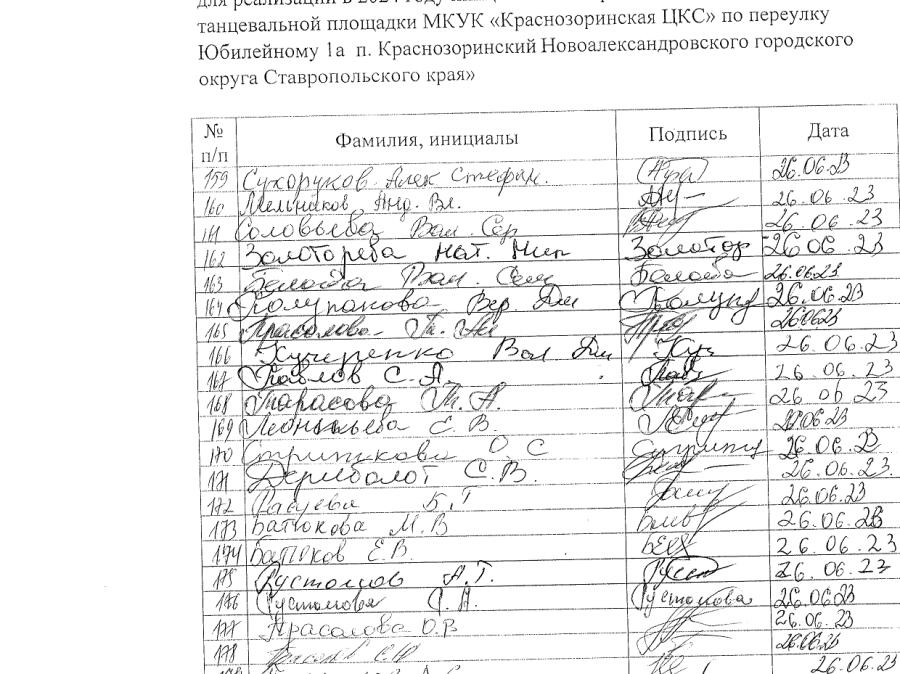 для реализации в 2024 году
танцевальной площадки МКУК «Краснозоринская ЦКС» по переулку
Юбилейному 1а п. Краснозоринский Новоалександровского городского
округа Ставропольского края»
№ п/п Фамилия, инициалы Подпись Дата
159 Сухоруков Алек Стефан. 26.06.23
160 Мельников Анд. Вл. 26.06.23
161 Соловьева Вал. Сер 26.06.23
162 Золоторева Нат. Ник Золотор 26.06.23
163 Вал. 26.06.23
164 Колупанова Вер. Дм Колуп 26.06.23
165 Прасолова 26.06.23
166 Кучеренко Вал Дм Куч 26.06.23
167 Павлов С. А. 26.06.23
168 Тарасова Т. А. 26.06.23
169 Леонтьева Е. В. 26.06.23
170 Стрипикова О. С 26.06.23
171 Дериболот С. В. 26.06.23
172 Б. Т 26.06.23
173 Батюкова М. В 26.06.23
174 Батюков Е. В. 26.06.23
175 Рустомов А. Т. 26.06.23
176 Рустомова Рустомова 26.06.23
177 Прасолова О. В 26.06.23
178 26.06.23
26.06.23